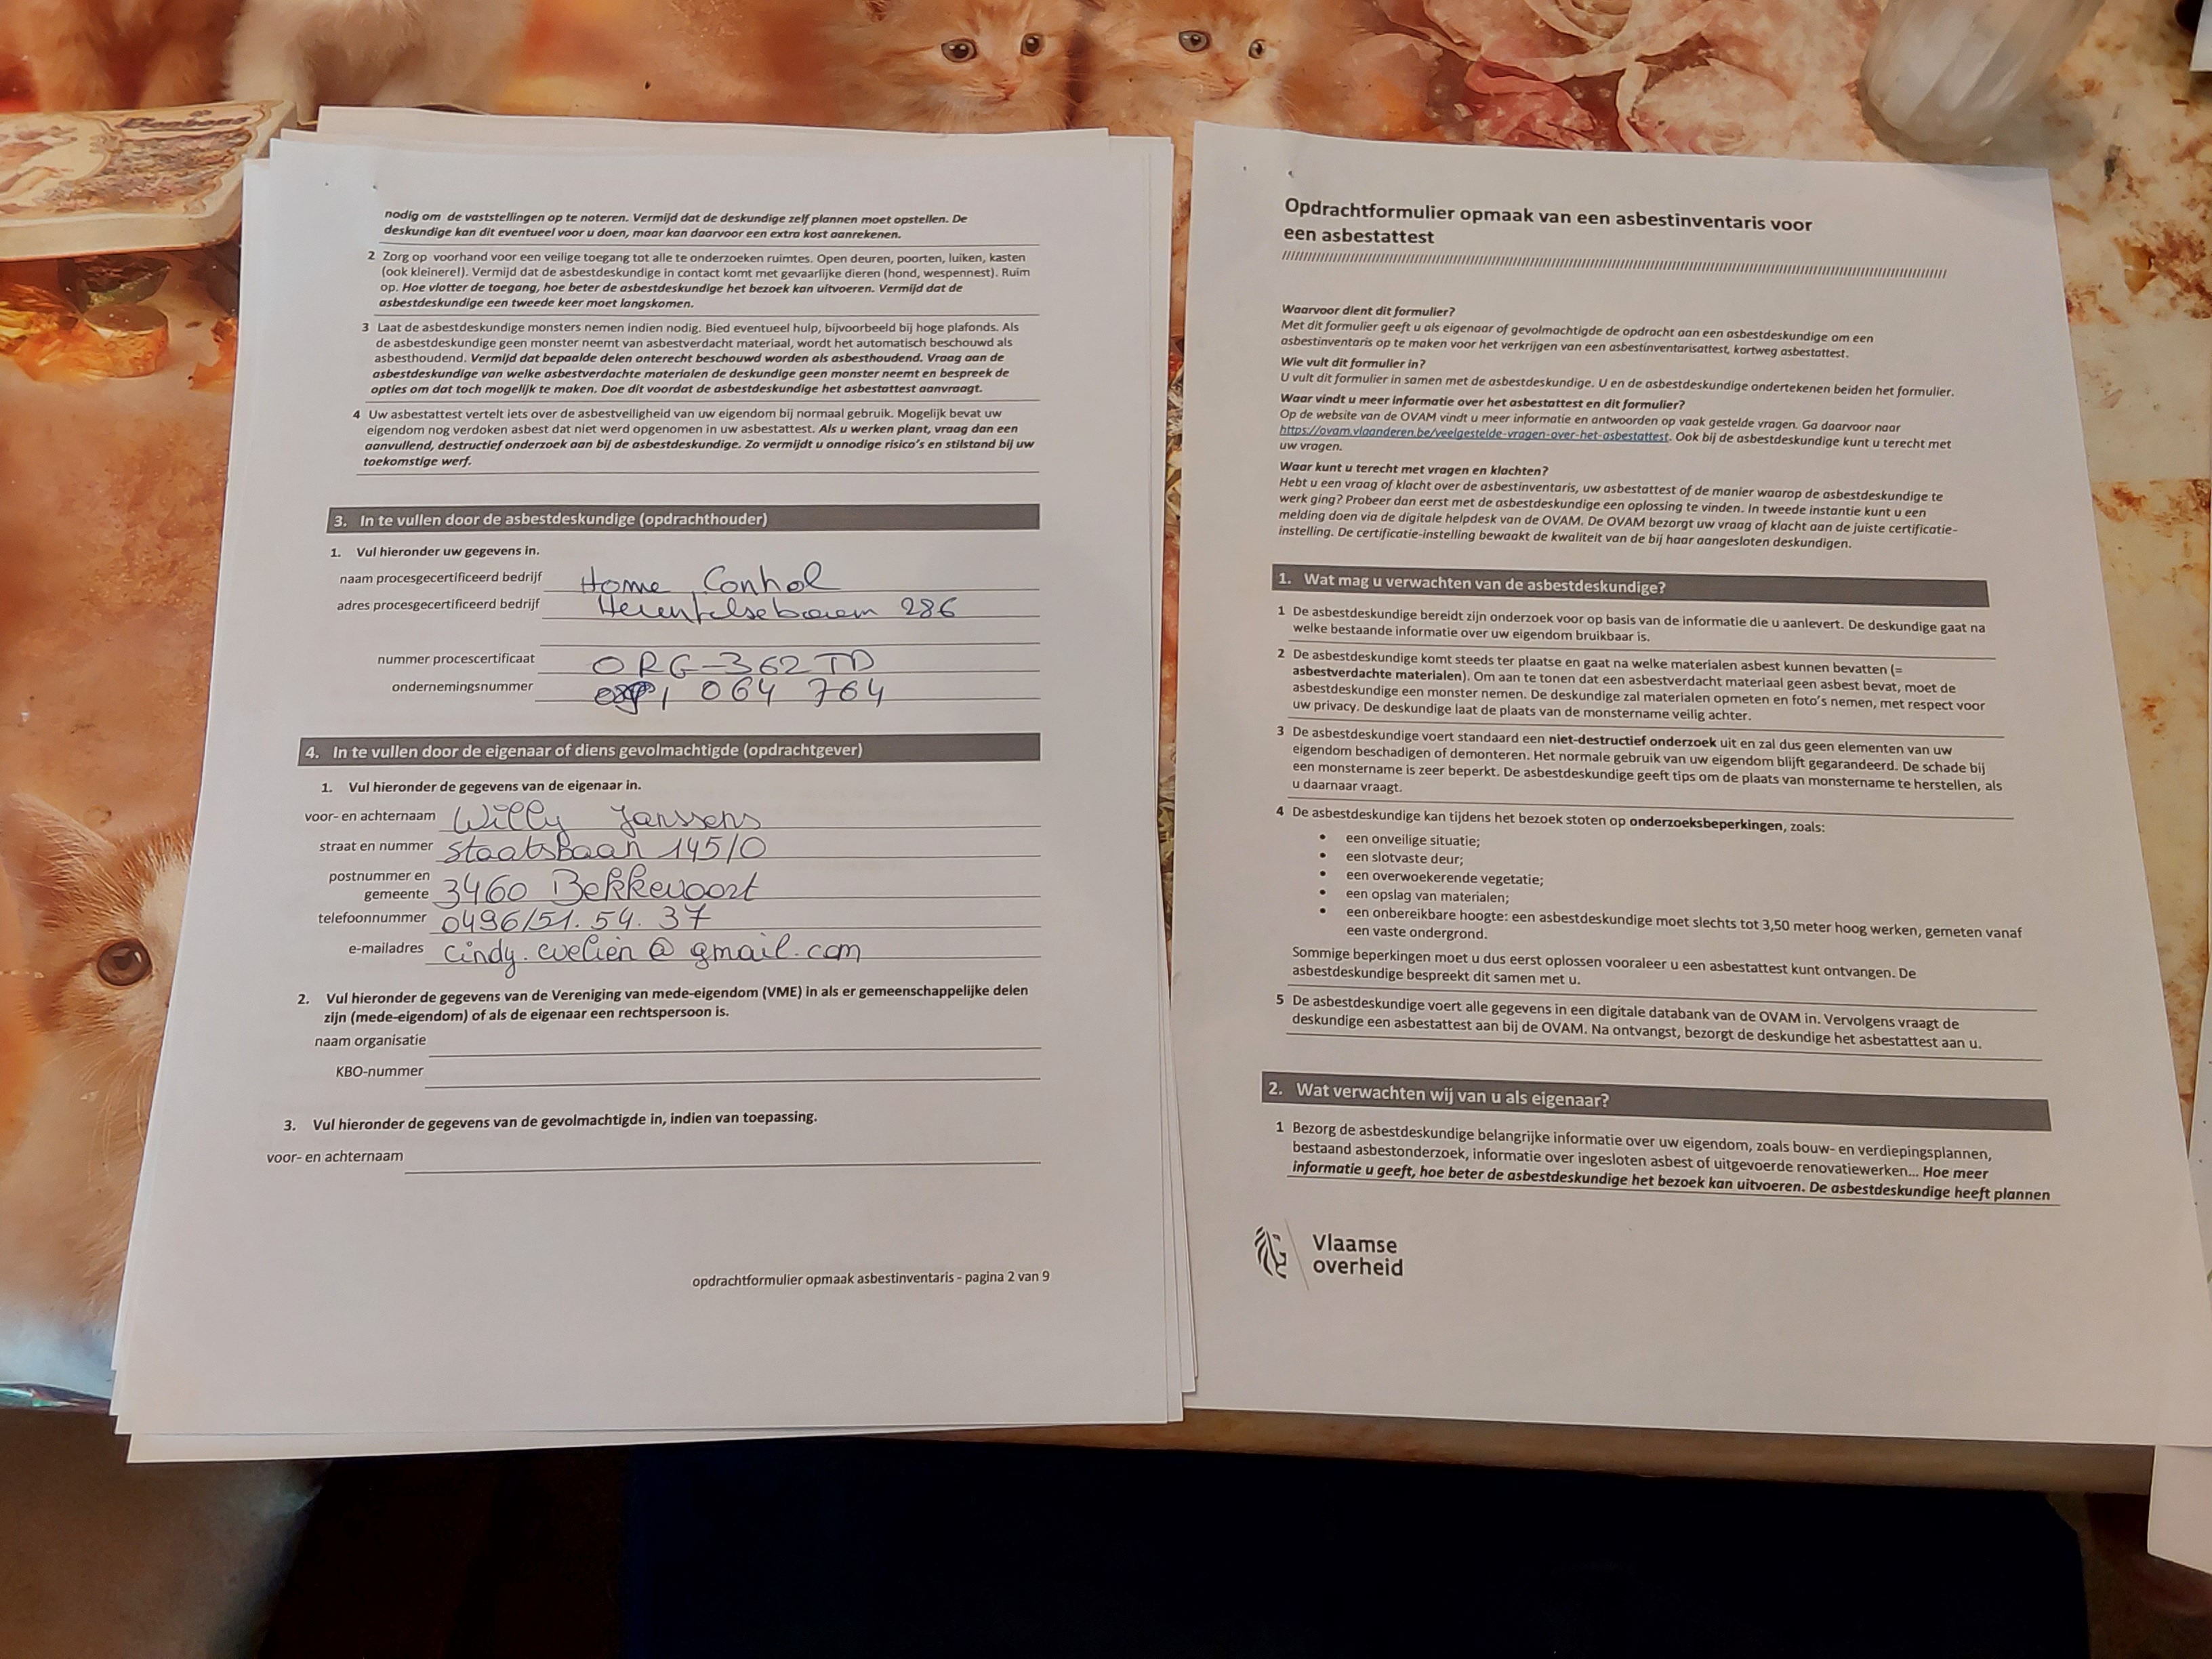 nodig om de vaststellingen op te noteren. Vermijd dat de deskundige zelf plannen moet opstellen. De
deskundige kan dit eventueel voor u doen, maar kan daarvoor een extra kost aanrekenen.
2 Zorg op voorhand voor een veilige toegang tot alle te onderzoeken ruimtes. Open deuren, poorten, luiken, kasten
(ook kleinere!). Vermijd dat de asbestdeskundige in contact komt met gevaarlijke dieren (hond, wespennest). Ruim
op. Hoe vlotter de toegang, hoe beter de asbestdeskundige het bezoek kan uitvoeren. Vermijd dat de
asbestdeskundige een tweede keer moet langskomen.
3 Laat de asbestdeskundige monsters nemen indien nodig. Bied eventueel hulp, bijvoorbeeld bij hoge plafonds. Als
de asbestdeskundige geen monster neemt van asbestverdacht materiaal, wordt het automatisch beschouwd als
asbesthoudend. Vermijd dat bepaalde delen onterecht beschouwd worden als asbesthoudend. Vraag aan de
asbestdeskundige van welke asbestverdachte materialen de deskundige geen monster neemt en bespreek de
opties om dat toch mogelijk te maken. Doe dit voordat de asbestdeskundige het asbestattest aanvraagt.
4 Uw asbestattest vertelt iets over de asbestveiligheid van uw eigendom bij normaal gebruik. Mogelijk bevat uw
eigendom nog verdoken asbest dat niet werd opgenomen in uw asbestattest. Als u werken plant, vraag dan een
aanvullend, destructief onderzoek aan bij de asbestdeskundige. Zo vermijdt u onnodige risico's en stilstand bij uw
toekomstige werf.
3. In te vullen door de asbestdeskundige (opdrachthouder)
1. Vul hieronder uw gegevens in.
naam procesgecertificeerd bedrijf Home Control
adres procesgecertificeerd bedrijf Herentalsebaan 286
nummer procescertificaat ORG-362TD
ondernemingsnummer 064 764
4. In te vullen door de eigenaar of diens gevolmachtigde (opdrachtgever)
1. Vul hieronder de gegevens van de eigenaar in.
voor- en achternaam Willy Janssens
straat en nummer Staatsbaan 145/0
postnummer en
gemeente 3460 Bekkevoort
telefoonnummer 0496/51.54.37
e-mailadres cindy.evelien@gmail.com
2. Vul hieronder de gegevens van de Vereniging van mede-eigendom (VME) in als er gemeenschappelijke delen
zijn (mede-eigendom) of als de eigenaar een rechtspersoon is.
naam organisatie
KBO-nummer
3. Vul hieronder de gegevens van de gevolmachtigde in, indien van toepassing.
voor- en achternaam
opdrachtformulier opmaak asbestinventaris - pagina 2 van 9
Opdrachtformulier opmaak van een asbestinventaris voor
een asbestattest
Waarvoor dient dit formulier?
Met dit formulier geeft u als eigenaar of gevolmachtigde de opdracht aan een asbestdeskundige om een
asbestinventaris op te maken voor het verkrijgen van een asbestinventarisattest, kortweg asbestattest.
Wie vult dit formulier in?
U vult dit formulier in samen met de asbestdeskundige. U en de asbestdeskundige ondertekenen beiden het formulier.
Waar vindt u meer informatie over het asbestattest en dit formulier?
Op de website van de OVAM vindt u meer informatie en antwoorden op vaak gestelde vragen. Ga daarvoor naar
https://ovam.vlaanderen.be/veelgestelde-vragen-over-het-asbestattest. Ook bij de asbestdeskundige kunt u terecht met
uw vragen.
Waar kunt u terecht met vragen en klachten?
Hebt u een vraag of klacht over de asbestinventaris, uw asbestattest of de manier waarop de asbestdeskundige te
werk ging? Probeer dan eerst met de asbestdeskundige een oplossing te vinden. In tweede instantie kunt u een
melding doen via de digitale helpdesk van de OVAM. De OVAM bezorgt uw vraag of klacht aan de juiste certificatie-
instelling. De certificatie-instelling bewaakt de kwaliteit van de bij haar aangesloten deskundigen.
1. Wat mag u verwachten van de asbestdeskundige?
1 De asbestdeskundige bereidt zijn onderzoek voor op basis van de informatie die u aanlevert. De deskundige gaat na
welke bestaande informatie over uw eigendom bruikbaar is.
2 De asbestdeskundige komt steeds ter plaatse en gaat na welke materialen asbest kunnen bevatten (=
asbestverdachte materialen). Om aan te tonen dat een asbestverdacht materiaal geen asbest bevat, moet de
asbestdeskundige een monster nemen. De deskundige zal materialen opmeten en foto's nemen, met respect voor
uw privacy. De deskundige laat de plaats van de monstername veilig achter.
3 De asbestdeskundige voert standaard een niet-destructief onderzoek uit en zal dus geen elementen van uw
eigendom beschadigen of demonteren. Het normale gebruik van uw eigendom blijft gegarandeerd. De schade bij
een monstername is zeer beperkt. De asbestdeskundige geeft tips om de plaats van monstername te herstellen, als
u daarnaar vraagt.
4 De asbestdeskundige kan tijdens het bezoek stoten op onderzoeksbeperkingen, zoals:
• een onveilige situatie;
• een slotvaste deur;
• een overwoekerende vegetatie;
• een opslag van materialen;
• een onbereikbare hoogte: een asbestdeskundige moet slechts tot 3,50 meter hoog werken, gemeten vanaf
een vaste ondergrond.
Sommige beperkingen moet u dus eerst oplossen vooraleer u een asbestattest kunt ontvangen. De
asbestdeskundige bespreekt dit samen met u.
5 De asbestdeskundige voert alle gegevens in een digitale databank van de OVAM in. Vervolgens vraagt de
deskundige een asbestattest aan bij de OVAM. Na ontvangst, bezorgt de deskundige het asbestattest aan u.
2. Wat verwachten wij van u als eigenaar?
1 Bezorg de asbestdeskundige belangrijke informatie over uw eigendom, zoals bouw- en verdiepingsplannen,
bestaand asbestonderzoek, informatie over ingesloten asbest of uitgevoerde renovatiewerken... Hoe meer
informatie u geeft, hoe beter de asbestdeskundige het bezoek kan uitvoeren. De asbestdeskundige heeft plannen
Vlaamse
overheid